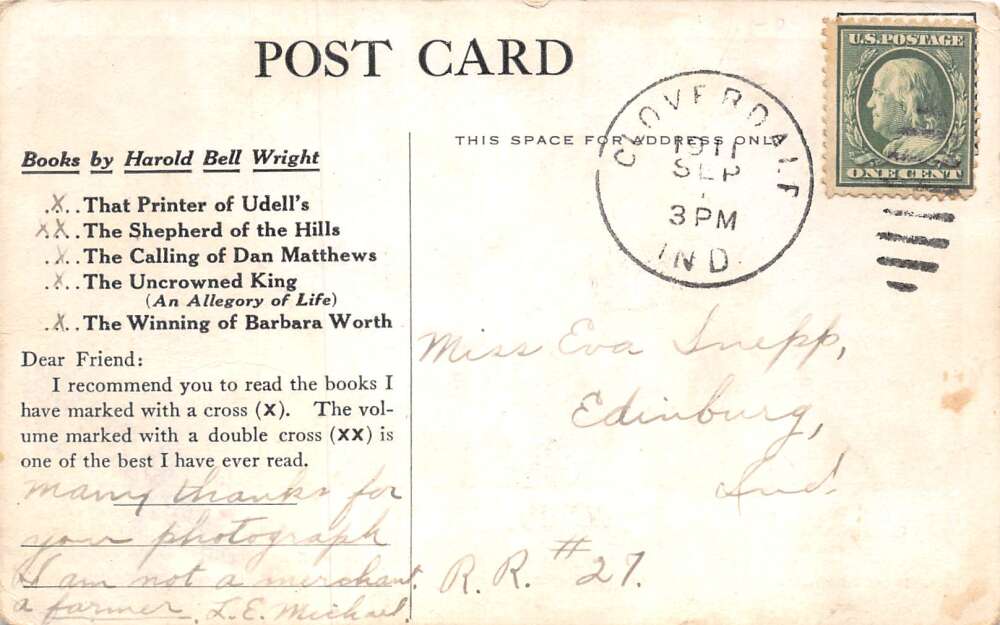 POST CARD
U.S. POSTAGE
ONE CENT
CLOVERDALE
1911
SEP
3 PM
IND.
THIS SPACE FOR ADDRESS ONLY
Books by Harold Bell Wright
.X..That Printer of Udell's
XX..The Shepherd of the Hills
.X..The Calling of Dan Matthews
.X..The Uncrowned King
(An Allegory of Life)
.X..The Winning of Barbara Worth
Dear Friend:
I recommend you to read the books I
have marked with a cross (X). The vol-
ume marked with a double cross (XX) is
one of the best I have ever read.
Many thanks for
your photograph
I am not a merchant.
a farmer. L. E. Michael.
Miss Eva Snepp,
Edinburg,
Ind.
R. R. #27.